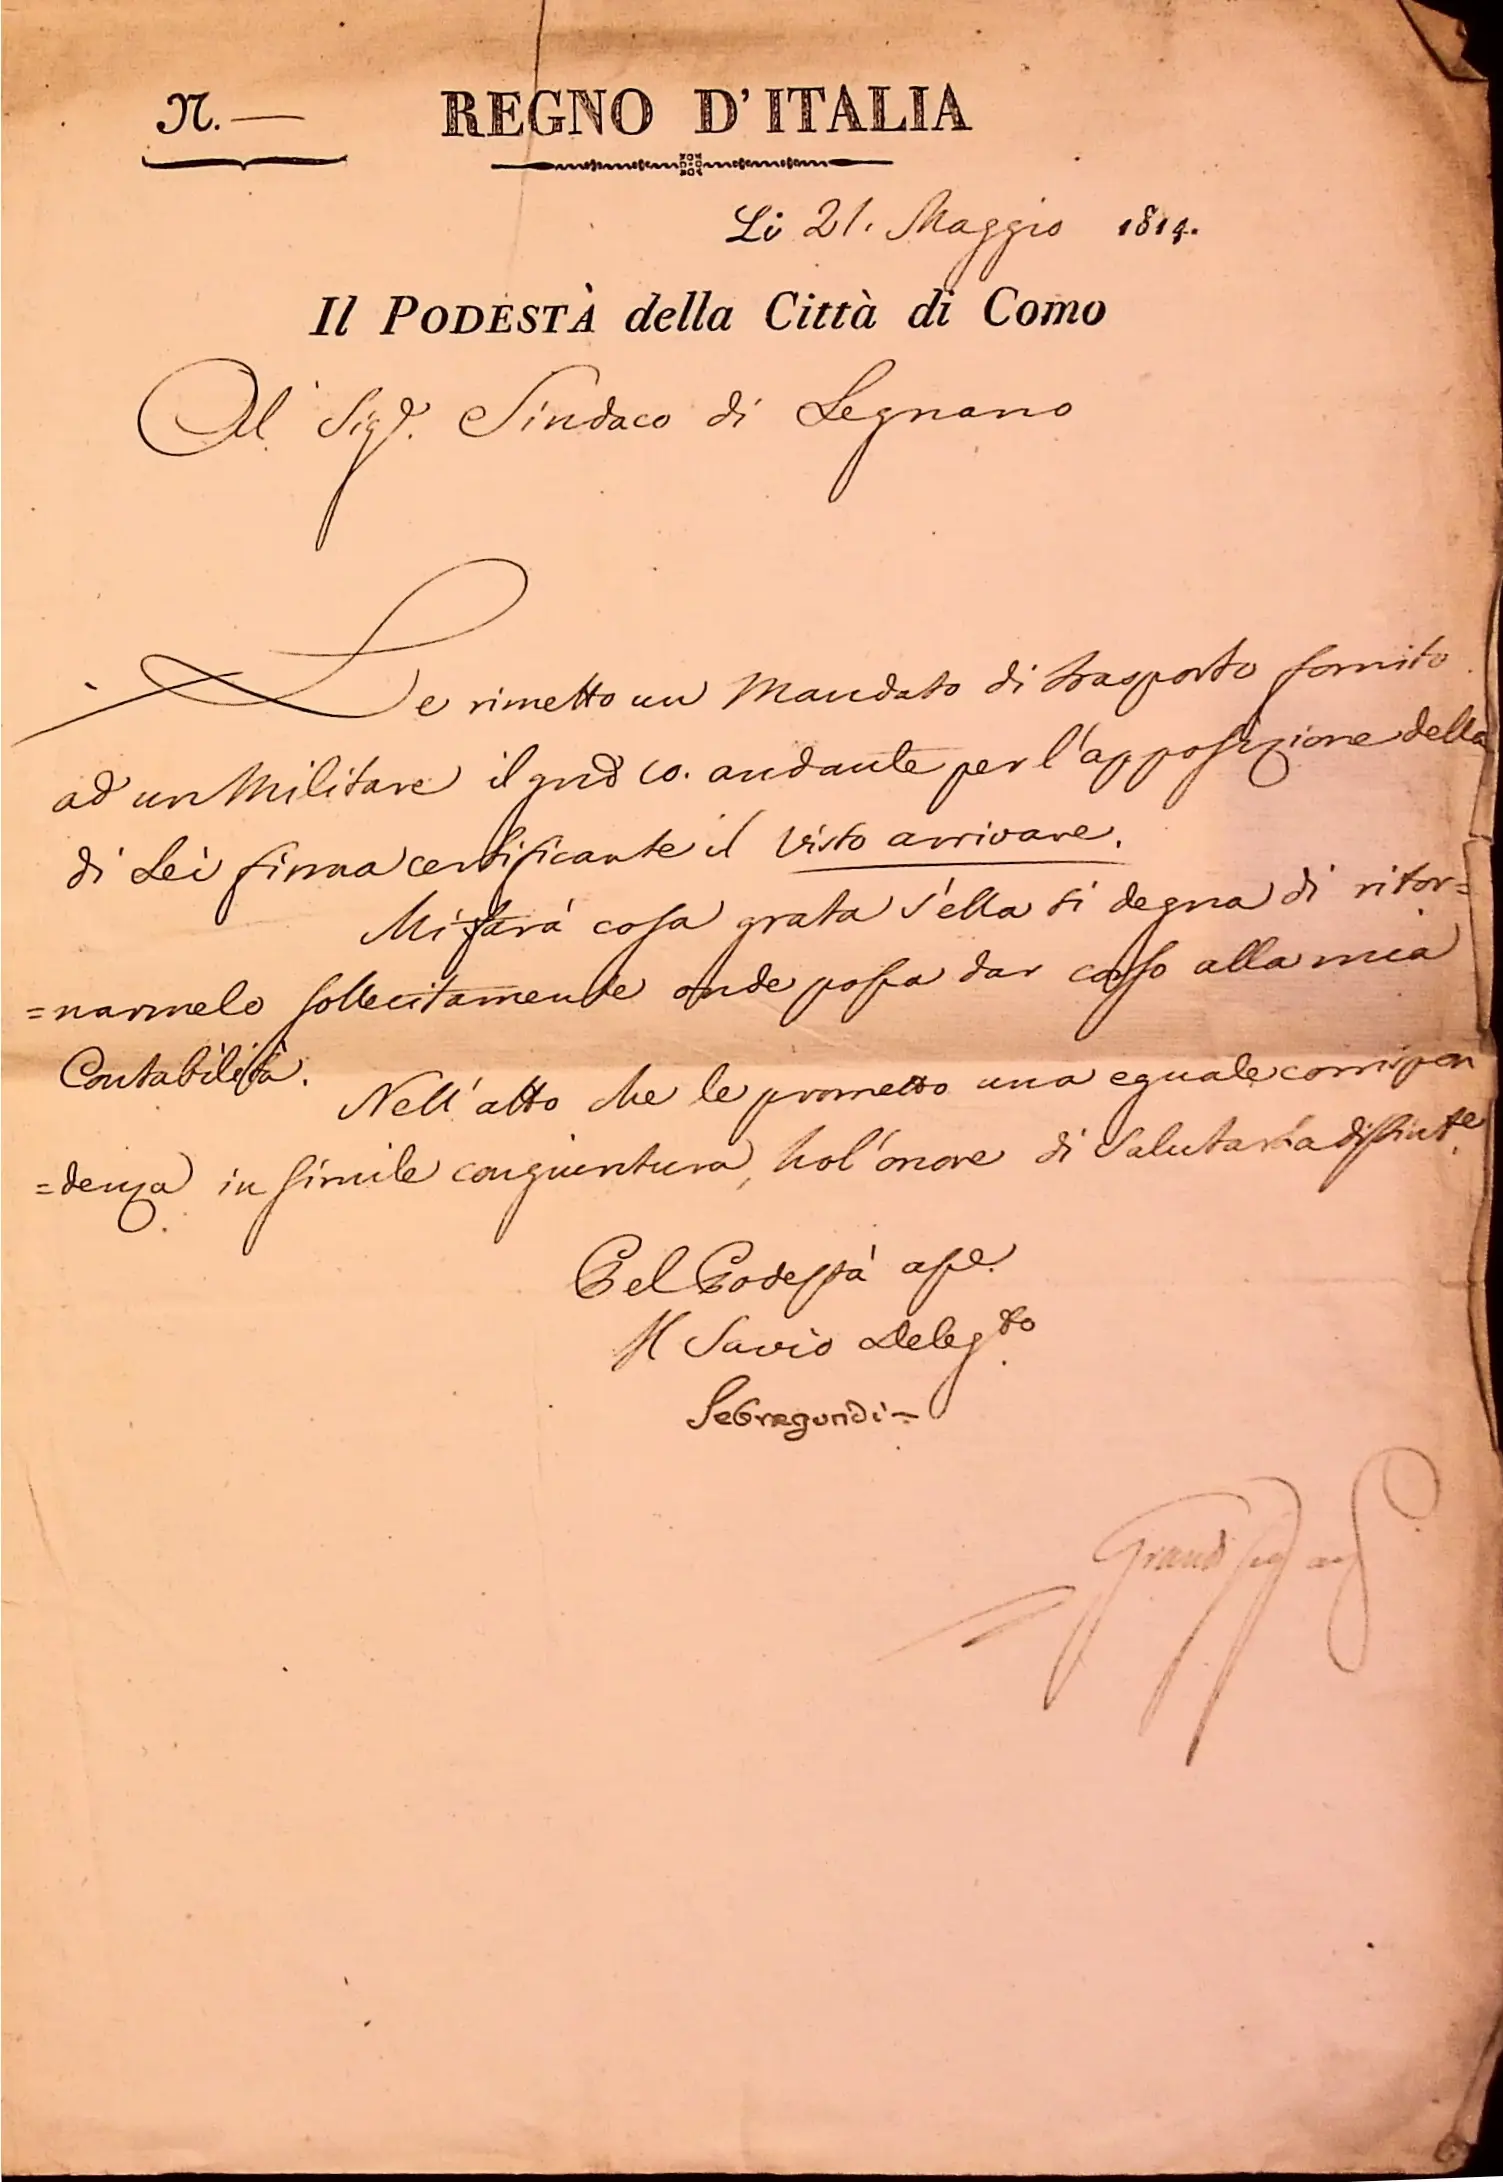 N. —
REGNO D'ITALIA
Li 21. Maggio 1814.
Il PODESTÀ della Città di Como
Al Sigr. Sindaco di Legnano
Le rimetto un Mandato di trasporto fornito
ad un Militare il andante per l'apposizione della
di Lei firma certificante il visto arrivare.
Mi farà cosa grata s'ella si degna di ritor=
=narmelo sollecitamente onde possa dar corso alla mia
Contabilità.
Nell'atto che le prometto una eguale corrispon
=denza in simile congiuntura, ho l'onore di salutarla distinte.
Pel Podestà asse.
Il Savio Delegto
Sebregondi =